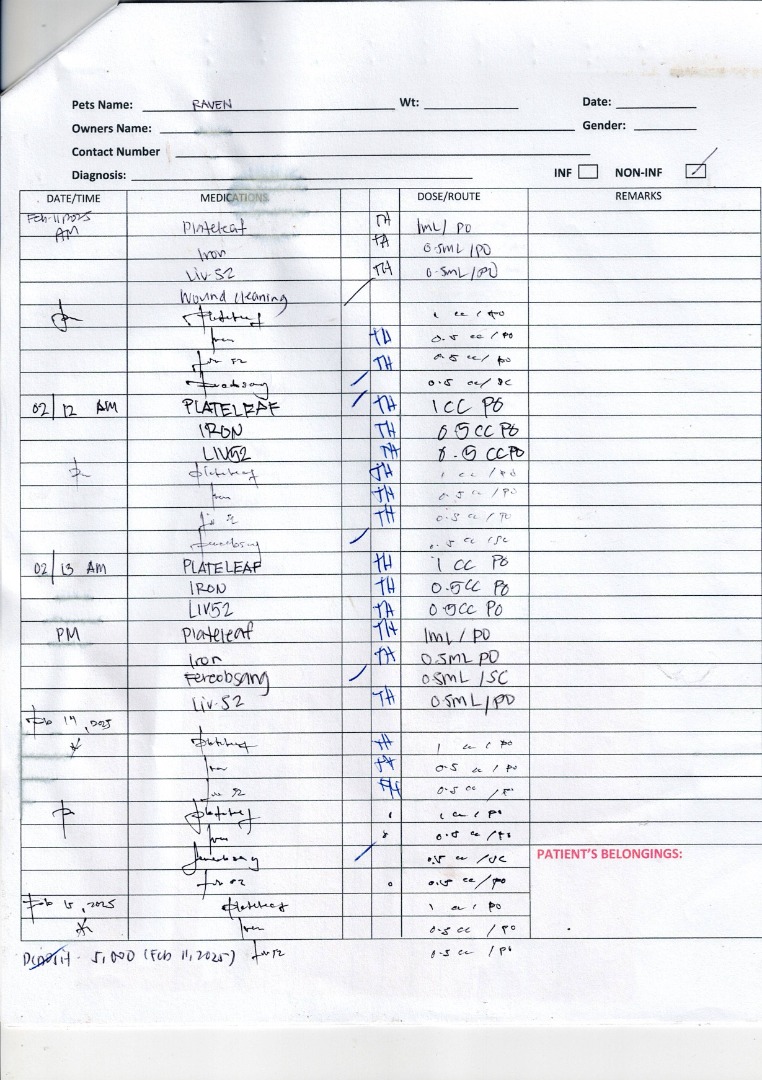 Pets Name: RAVEN Wt: Date:
Owners Name: Gender:
Contact Number
Diagnosis: INF NON-INF
DATE/TIME MEDICATIONS DOSE/ROUTE REMARKS
Feb-11, 2025
AM Plateleaf TH 1mL/ PO
Iron TH 0.5mL /PO
Liv-52 TH 0.5mL/PO
Wound cleaning
Plateleaf 1 cc / PO
Iron TH 0.5 cc / PO
Liv 52 TH 0.5 cc/ PO
0.5 cc/ SC
02/12 AM PLATELEAF TH 1CC PO
IRON TH 0.5CC PO
LIV52 TH 0.5 CC PO
Plateleaf TH 1 cc / PO
Iron TH 0.5 cc / PO
Liv 52 TH 0.5 cc / PO
0.5 cc /SC
02/13 AM PLATELEAF TH 1 CC PO
IRON TH 0.5CC PO
LIV52 TH 0.5CC PO
PM Plateleaf TH 1mL / PO
Iron TH 0.5mL PO
Fercobsang 0.5mL /SC
Liv-52 TH 0.5mL/PO
Feb 14, 2025
Plateleaf TH 1 cc / PO
Iron TH 0.5 cc / PO
Liv 52 TH 0.5 cc / PO
Plateleaf 1 cc / PO
Iron 0.5 cc / PO
0.5 cc /SC PATIENT'S BELONGINGS:
Liv 52 0.5 cc/PO
Feb 15, 2025 Plateleaf 1 cc / PO
Iron 0.5 cc / PO
5,000 (Feb 11, 2025) Liv 52 0.5 cc / PO